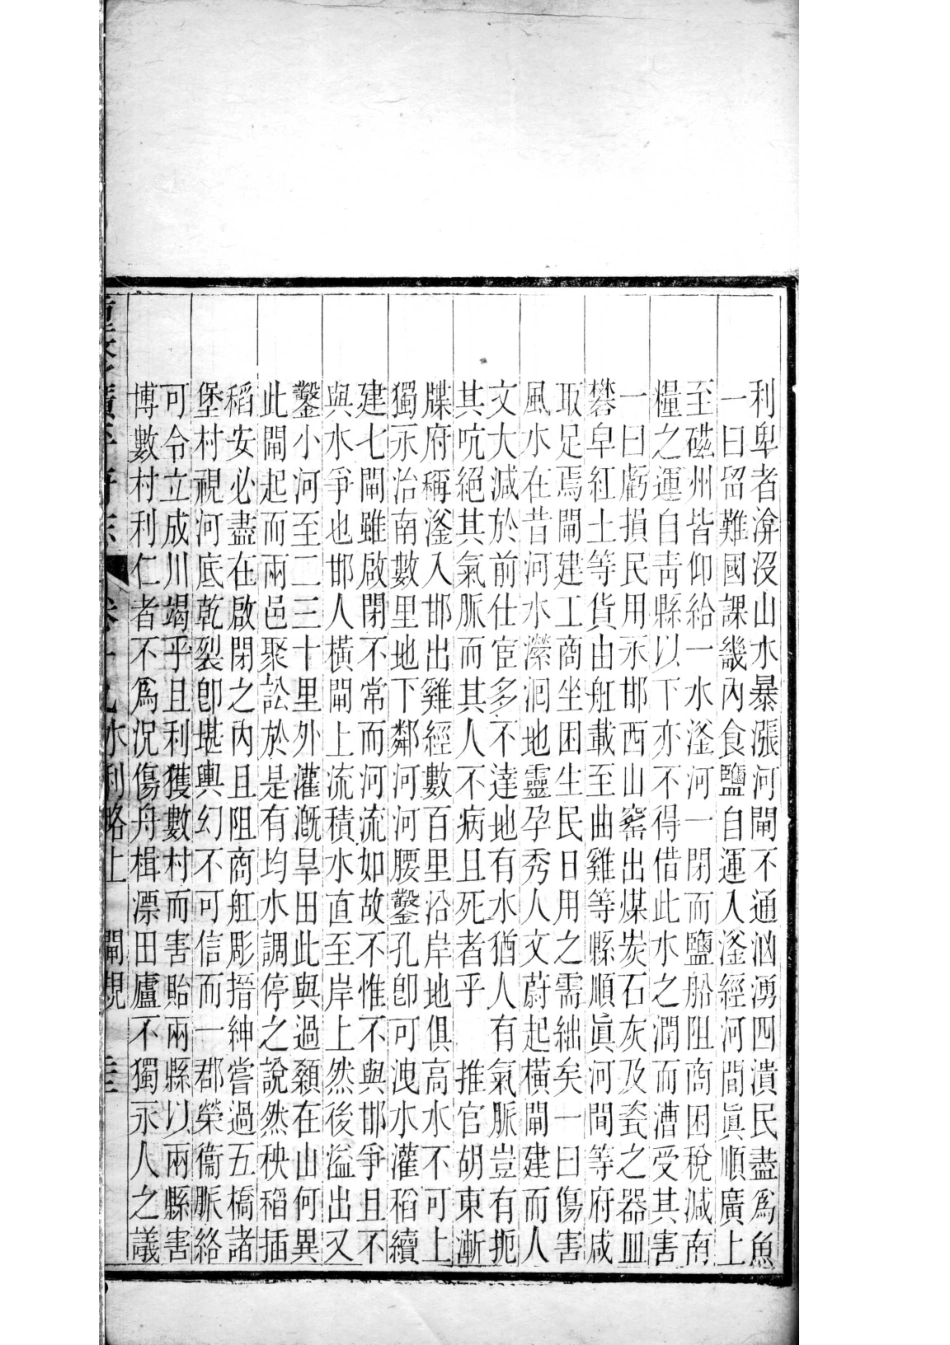 利卑者渰没山水暴漲河閘不通洶湧四潰民盡爲魚
一曰留難國課畿內食鹽自運入滏經河間眞順廣上
至磁州皆仰給一水滏河一閉而鹽船阻商困稅減南
糧之運自靑縣以下亦不得借此水之潤而漕受其害
一曰虧損民用永邯西山窰出煤炭石灰及瓷之器皿
礬皁紅土等貨由舡載至曲雞等縣順眞河間等府咸
取足焉閘建工商坐困生民日用之需絀矣一曰傷害
風水在昔河水瀠洄地靈孕秀人文蔚起橫閘建而人
文大減於前仕宦多不達地有水猶人有氣脈豈有扼
其吭絕其氣脈而其人不病且死者乎 推官胡東漸
牒府稱滏入邯出雞經數百里沿岸地俱高水不可上
獨永治南數里地下鄰河河腰鑿孔卽可洩水灌稻續
建七閘雖啟閉不常而河流如故不惟不與邯爭且不
與水爭也邯人橫閘上流積水直至岸上然後溢出又
鑿小河至二三十里外灌漑旱田此與過顙在山何異
此閘起而兩邑聚訟於是有均水調停之說然秧稻插
稻安必盡在啟閉之內且阻商舡彫搢紳嘗過五橋諸
堡村視河底乾裂卽堪輿幻不可信而一郡榮衞脈絡
可令立成川竭乎且利獲數村而害貽兩縣以兩縣害
博數村利仁者不爲況傷舟楫漂田廬不獨永人之議
水利略上 閘規